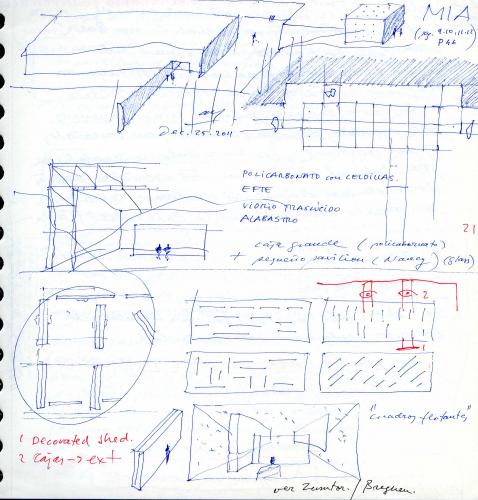 MIA
(pg. 9.10.11.12
P46
Dec. 25. 2011
POLICARBONATO con CELDILLAS.
EFTE
VIDRIO TRASLÚCIDO
ALABASTRO
caja grande (policarbonato)
+ pequeño pavilion (Nancy) (glass)
21
2
1
"Cuadros flotantes"
1 Decorated shed.
2 Cajas → ext
ver Zumtor. / Bregenz.